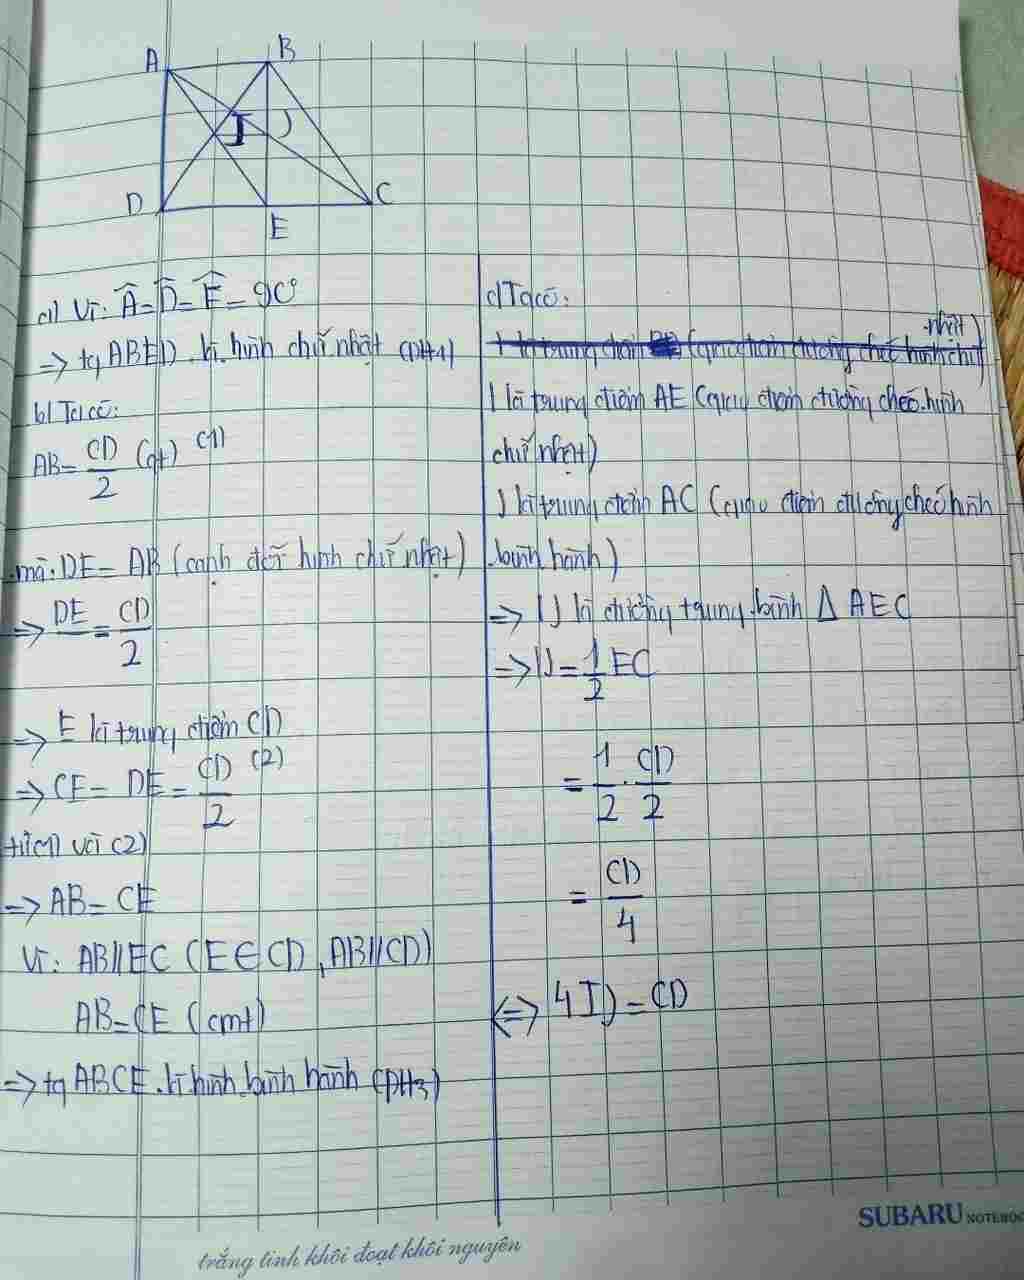 A
B
I
J
D
E
C
a) Vì: Â = D̂ = Ê = 90°
=> tg ABED là hình chữ nhật (DH1)
b) Ta có:
AB = CD/2 (gt) (1)
mà: DE = AB (cạnh đối hình chữ nhật)
=> DE = CD/2
=> E là trung điểm CD
=> CE = DE = CD/2 (2)
từ (1) và (2)
=> AB = CE
Vì: AB // EC (E ∈ CD, AB // CD)
AB = CE (cmt)
=> tg ABCE là hình bình hành (DH3)
c) Ta có:
I là trung điểm AE (giao điểm đường chéo hình
chữ nhật)
J là trung điểm AC (giao điểm đường chéo hình
bình hành)
=> IJ là đường trung bình Δ AEC
=> IJ = 1/2 EC
= 1/2 . CD/2
= CD/4
<=> 4IJ = CD
SUBARU NOTEBOO
trắng tinh khôi đoạt khôi nguyên